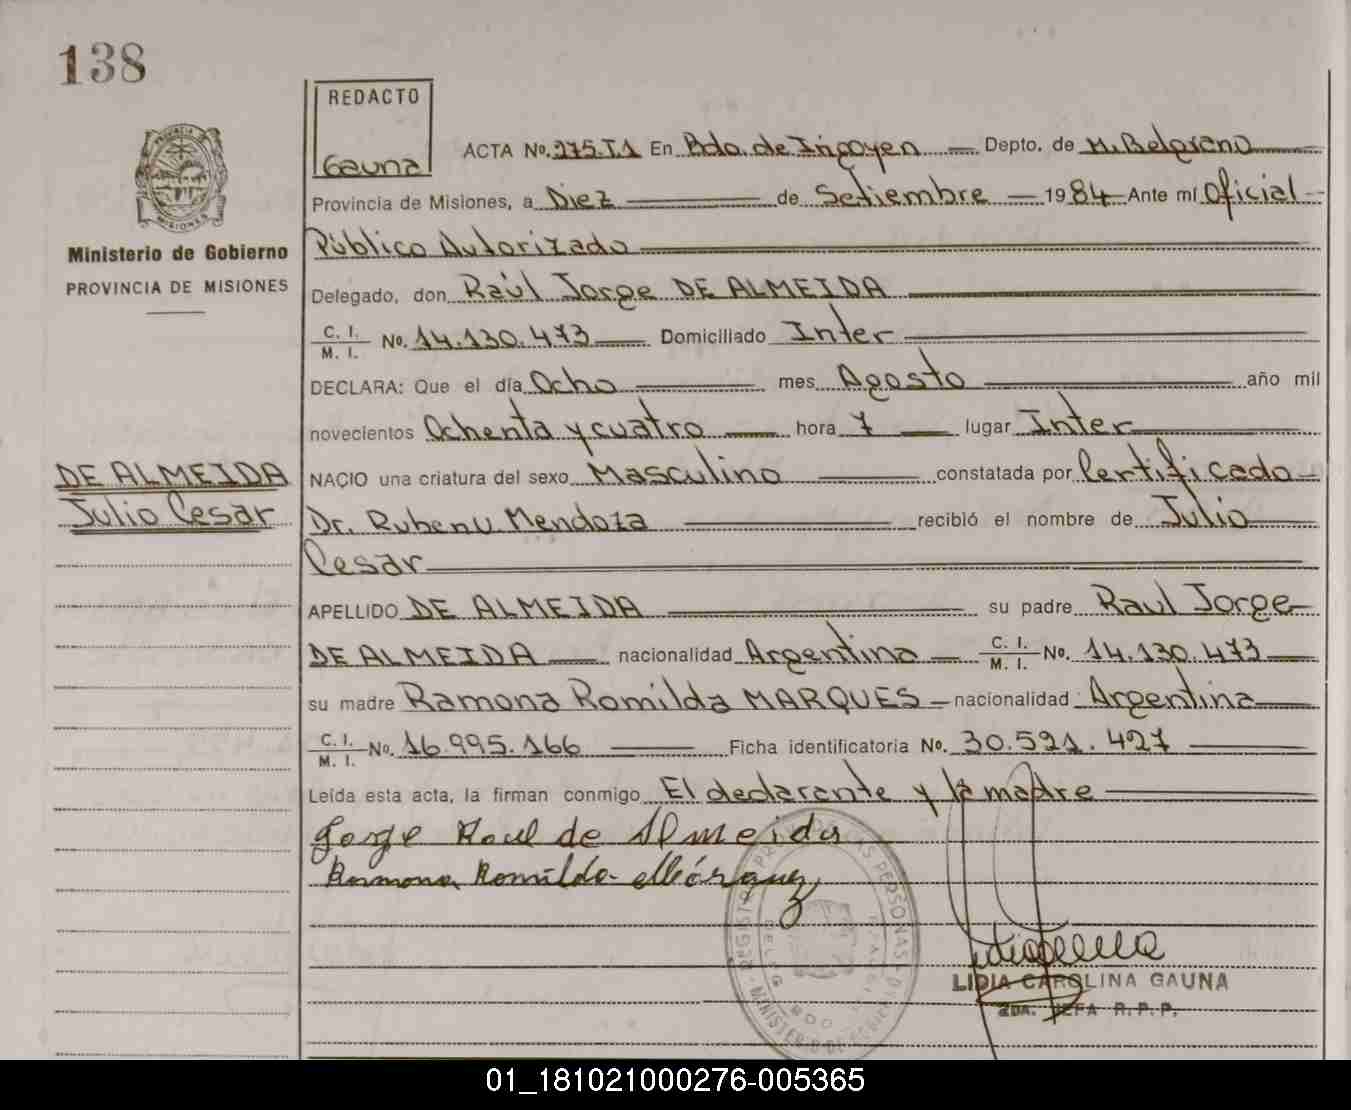 138
REDACTO
Gauna
ACTA No. 275.T1 En Bdo. de Irigoyen Depto. de M. Belgrano
Provincia de Misiones, a Diez de Setiembre 1984 Ante mí Oficial
Público Autorizado
Delegado, don Raúl Jorge DE ALMEIDA
C. I. / M. I. No. 14.130.473 Domiciliado Inter
DECLARA: Que el día Ocho mes Agosto año mil
novecientos Ochenta y cuatro hora 7 lugar Inter
NACIO una criatura del sexo Masculino constatada por Certificado
Dr. Ruben U. Mendoza recibió el nombre de Julio
Cesar
APELLIDO DE ALMEIDA su padre Raul Jorge
DE ALMEIDA nacionalidad Argentino C. I. / M. I. No. 14.130.473
su madre Ramona Romilda MARQUES nacionalidad Argentina
C. I. / M. I. No. 16.995.166 Ficha identificatoria No. 30.521.427
Leída esta acta, la firman conmigo El declarante y la madre
Jorge Raul de Almeida
Ramona Romilda Márquez
LIDIA CAROLINA GAUNA
2DA. JEFA R.P.P.
PROVINCIA DE MISIONES
Ministerio de Gobierno
PROVINCIA DE MISIONES
DE ALMEIDA
Julio Cesar
01_181021000276-005365